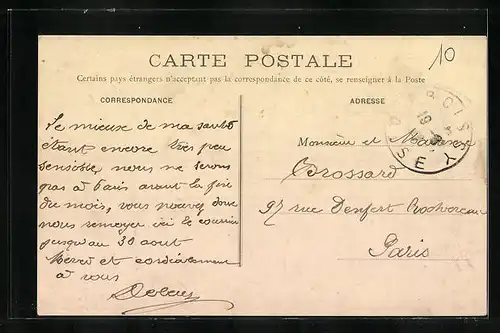 CARTE POSTALE
10
Certains pays étrangers n'acceptent pas la correspondance de ce côté, se renseigner à la Poste
CORRESPONDANCE
ADRESSE
Le mieux de ma santé
étant encore très peu
sensible, nous ne serons
pas à Paris avant la fin
du mois, vous pouvez donc
nous renvoyer ici le courrier
jusqu'au 30 aout
Merci et cordialement
à vous
Monsieur et Madame
Brossard
97 rue Denfert Rochereau
Paris